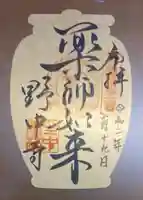 奉拝
令和二年
二月十九日
薬師如来
野中寺